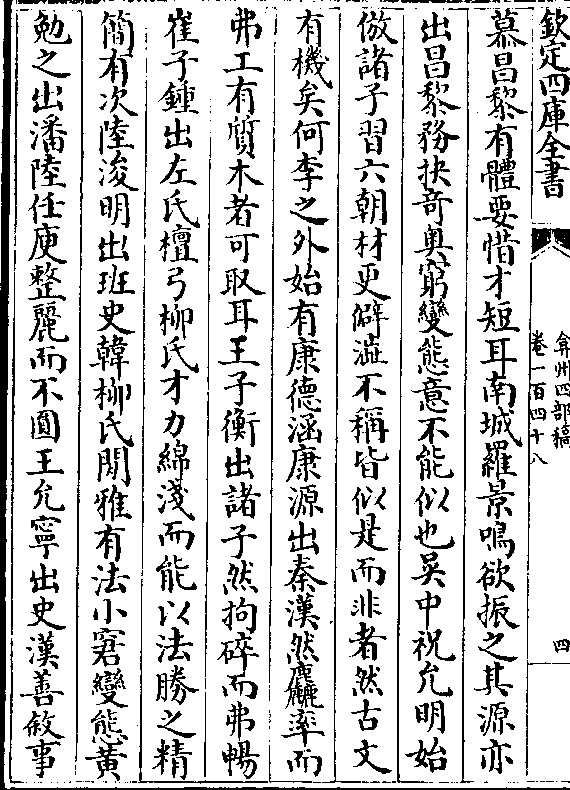 欽定四庫全書
弇州四部稿
卷一百四十八
四
慕昌黎有體要惜才短耳南城羅景鳴欲振之其源亦
出昌黎務抉奇奥窮變態意不能似也吳中祝允明始
倣諸子習六朝材更僻澁不稱皆似是而非者然古文
有機矣何李之外始有康德涵康源出秦漢然麤率而
弗工有質木者可取耳王子衡出諸子然拘碎而弗暢
崔子鍾出左氏檀弓柳氏才力綿淺而能以法勝之精
簡有次陸浚明出班史韓柳氏閒雅有法小窘變態黄
勉之出潘陸任庾整麗而不圓王允寧出史漢善敘事